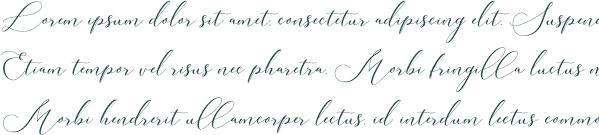 Lorem ipsum dolor sit amet, consectetur adipiscing elit. Suspen
Etiam tempor vel risus nec pharetra. Morbi fringilla luctus n
Morbi hendrerit ullamcorper lectus, id interdum lectus commo